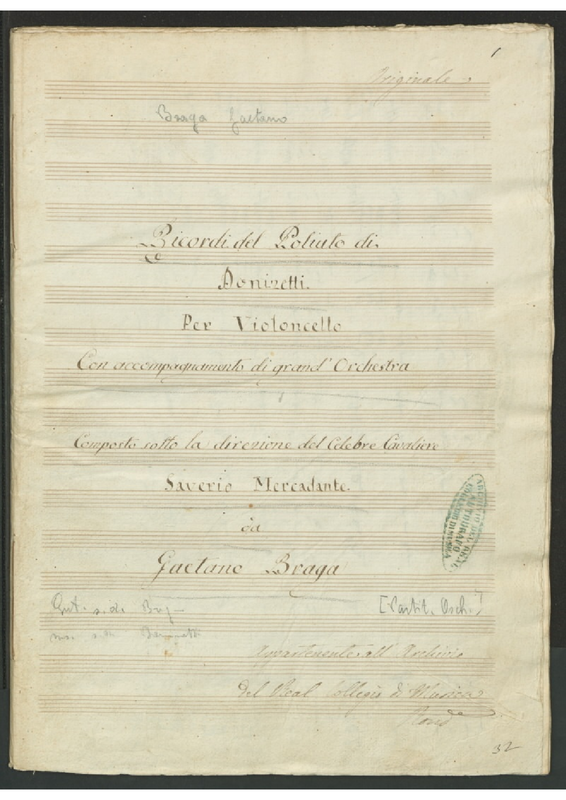 1
Originale
Braga Gaetano
Ricordi del Poliuto di
Donizetti.
Per Violoncello
Con accompagnamento di grand' Orchestra
Composto sotto la direzione del Celebre Cavaliere
Saverio Mercadante.
da
Gaetano Braga
[Partit. Orch.]
Appartenente all' Archivio
del Real Collegio di Musica
32